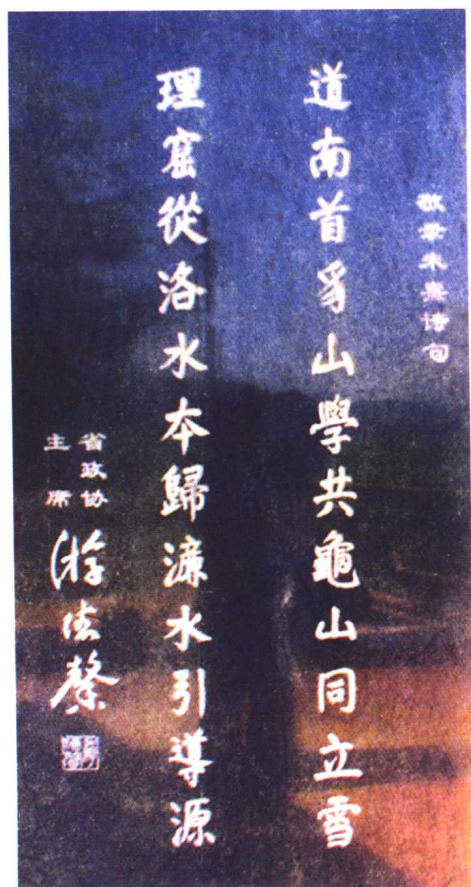 敬录朱熹诗句
道南首豸山學共龜山同立雪
理窟從洛水本歸濂水引導源
省政协
主席
游德馨